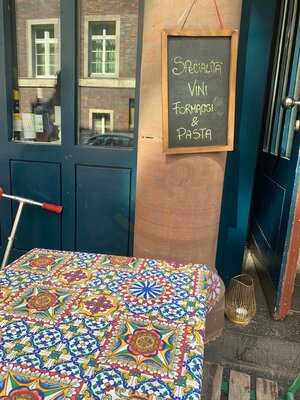 SPECIALITA'
VINI
FORMAGGI
&
PASTA